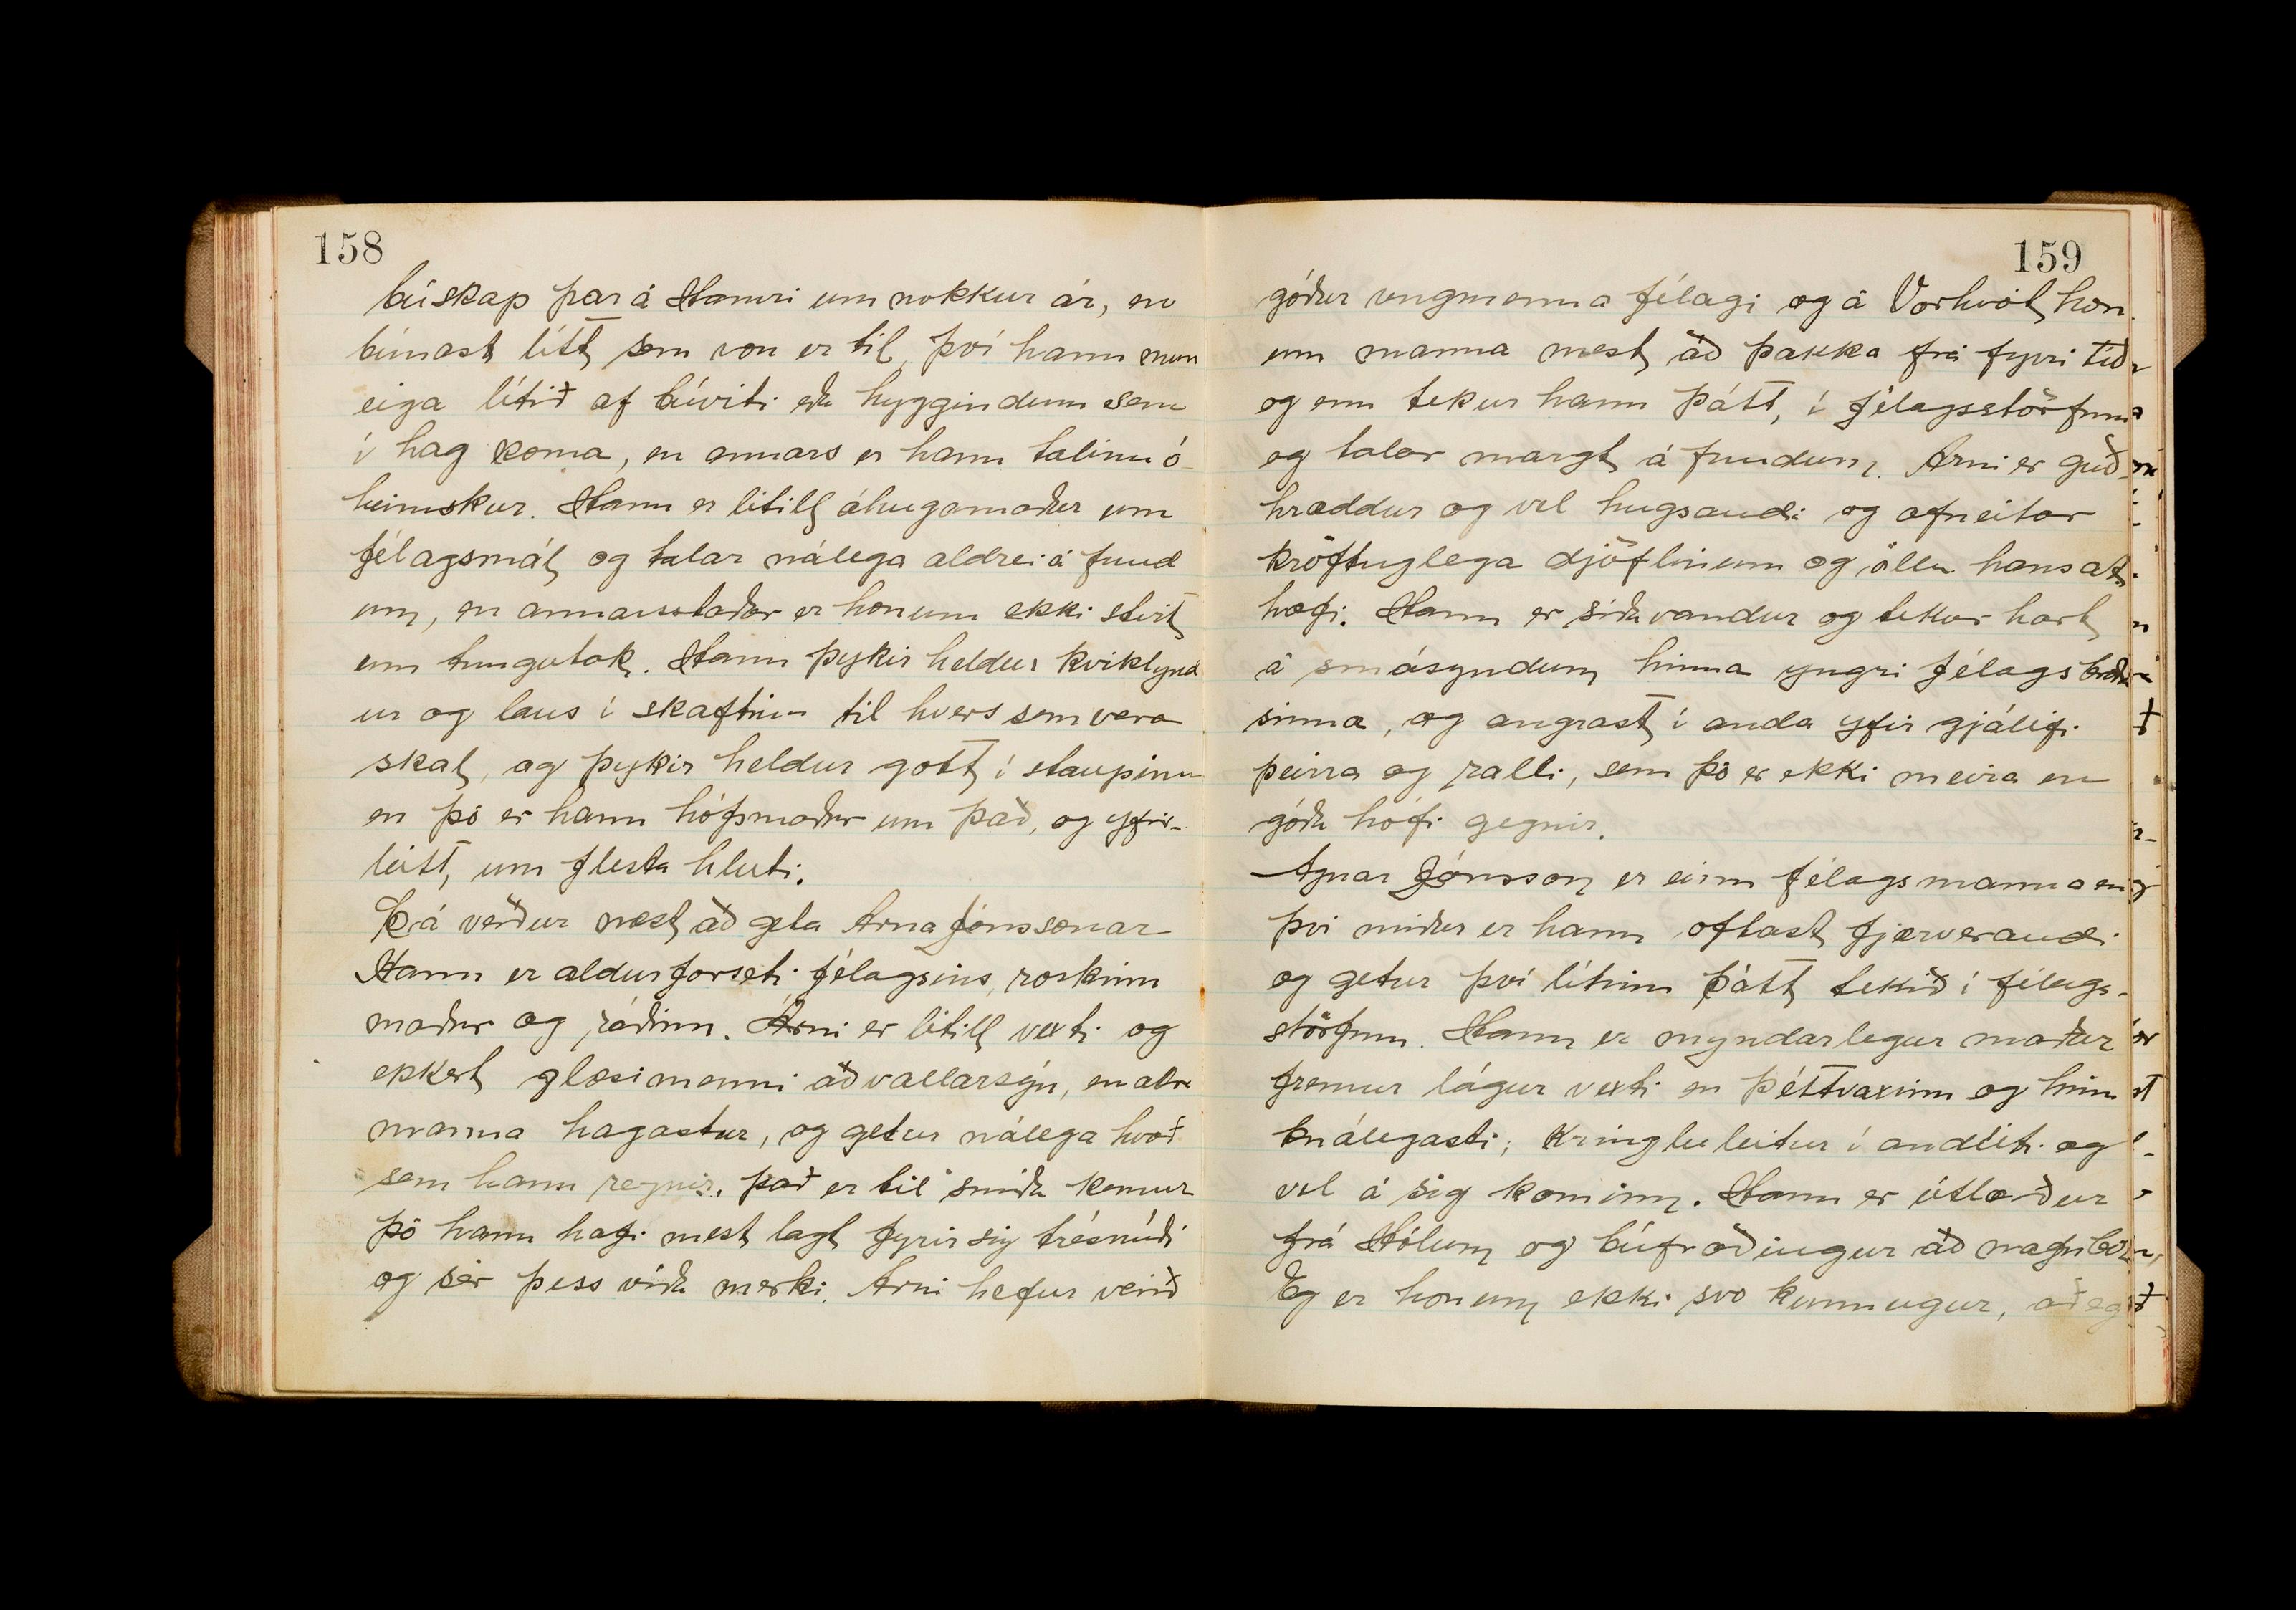 158
búskap þar á Hamri um nokkur ár, en
búnast lítt sem von er til, því hann mun
eiga lítið af búviti eða hyggindum sem
í hag koma, en annars er hann talinn ó-
heimskur. Hann er lítill áhugamaður um
félagsmál og talar nálega aldrei á fund
um, en annarsstaðar er honum ekki stirt
um tungutak. Hann þykir heldur kviklynd
ur og laus í skaftinu til hvers sem vera
skal, og þykir heldur gott í staupinu
en þó er hann hófsmaður um það, og yfir-
leitt, um flesta hluti.
Þá verður næst að geta Árna Jónssonar
Hann er aldursforseti félagsins, roskinn
maður og ráðinn. Árni er lítill vexti og
ekkert glæsimenni að vallarsýn, en allra
manna hagastur, og getur nálega hvað
sem hann reynir, það er til smíða kemur
þó hann hafi mest lagt fyrir sig trésmíði
og sér þess víða merki. Árni hefur verið
159
góður ungmenna félagi og á Vorhvöt hon
um manna mest að þakka frá fyrri tíð
og enn tekur hann þátt, í félagsstörfum
og talar margt á fundum. Árni er guð-
hræddur og vel hugsandi og afneitar
kröftuglega djöflinum og öllu hans at
hæfi. Hann er siðavandur og tekur hart
á smásyndum hinna yngri félagsbræðra
sinna, og angrast í anda yfir gjálífi
þeirra og ralli, sem þó er ekki meira en
góðu hófi gegnir.
Agnar Jónsson er einn félagsmanna en
því miður er hann oftast fjærverandi
og getur því lítinn þátt tekið í félags-
störfum. Hann er myndarlegur maður
fremur lágur vexti en þéttvaxinn og hinn
knálegasti; kringluleitur í andliti og
vel á sig kominn. Hann er útlærður
frá Hólum og búfræðingur að nafnbót
Eg er honum ekki svo kunnugur, að eg